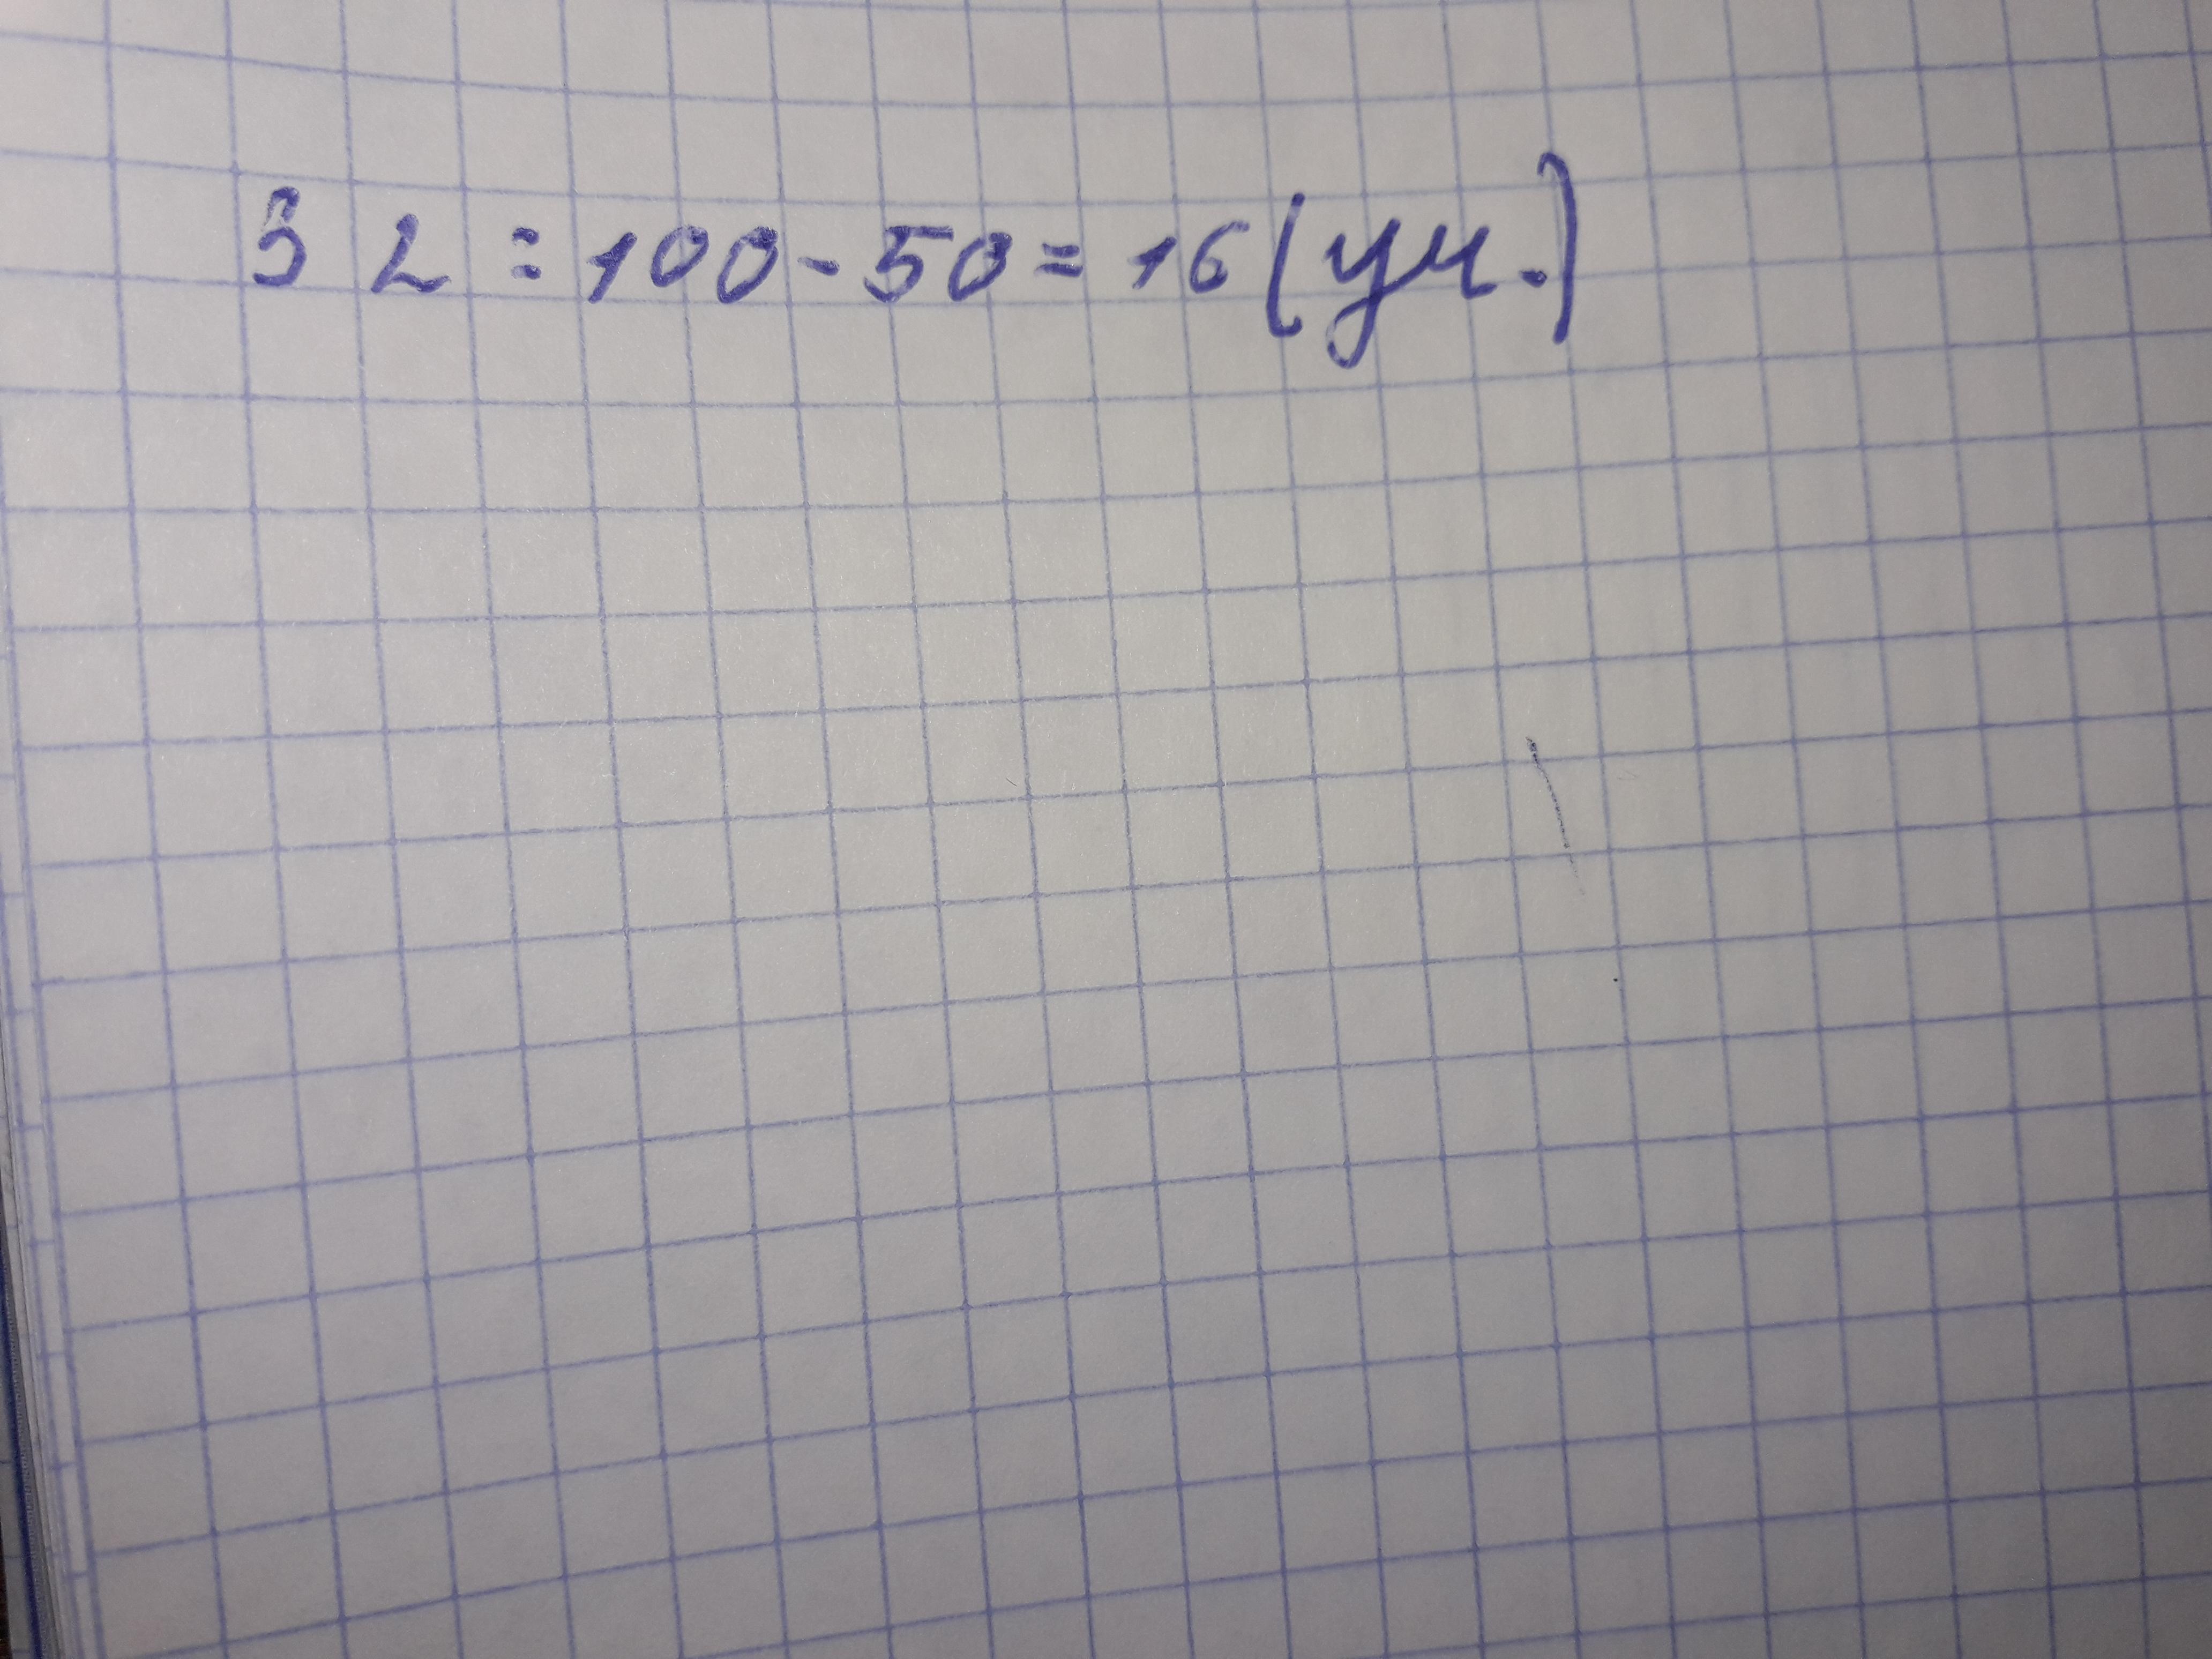 32 : 100 - 50 = 16 (уч.)